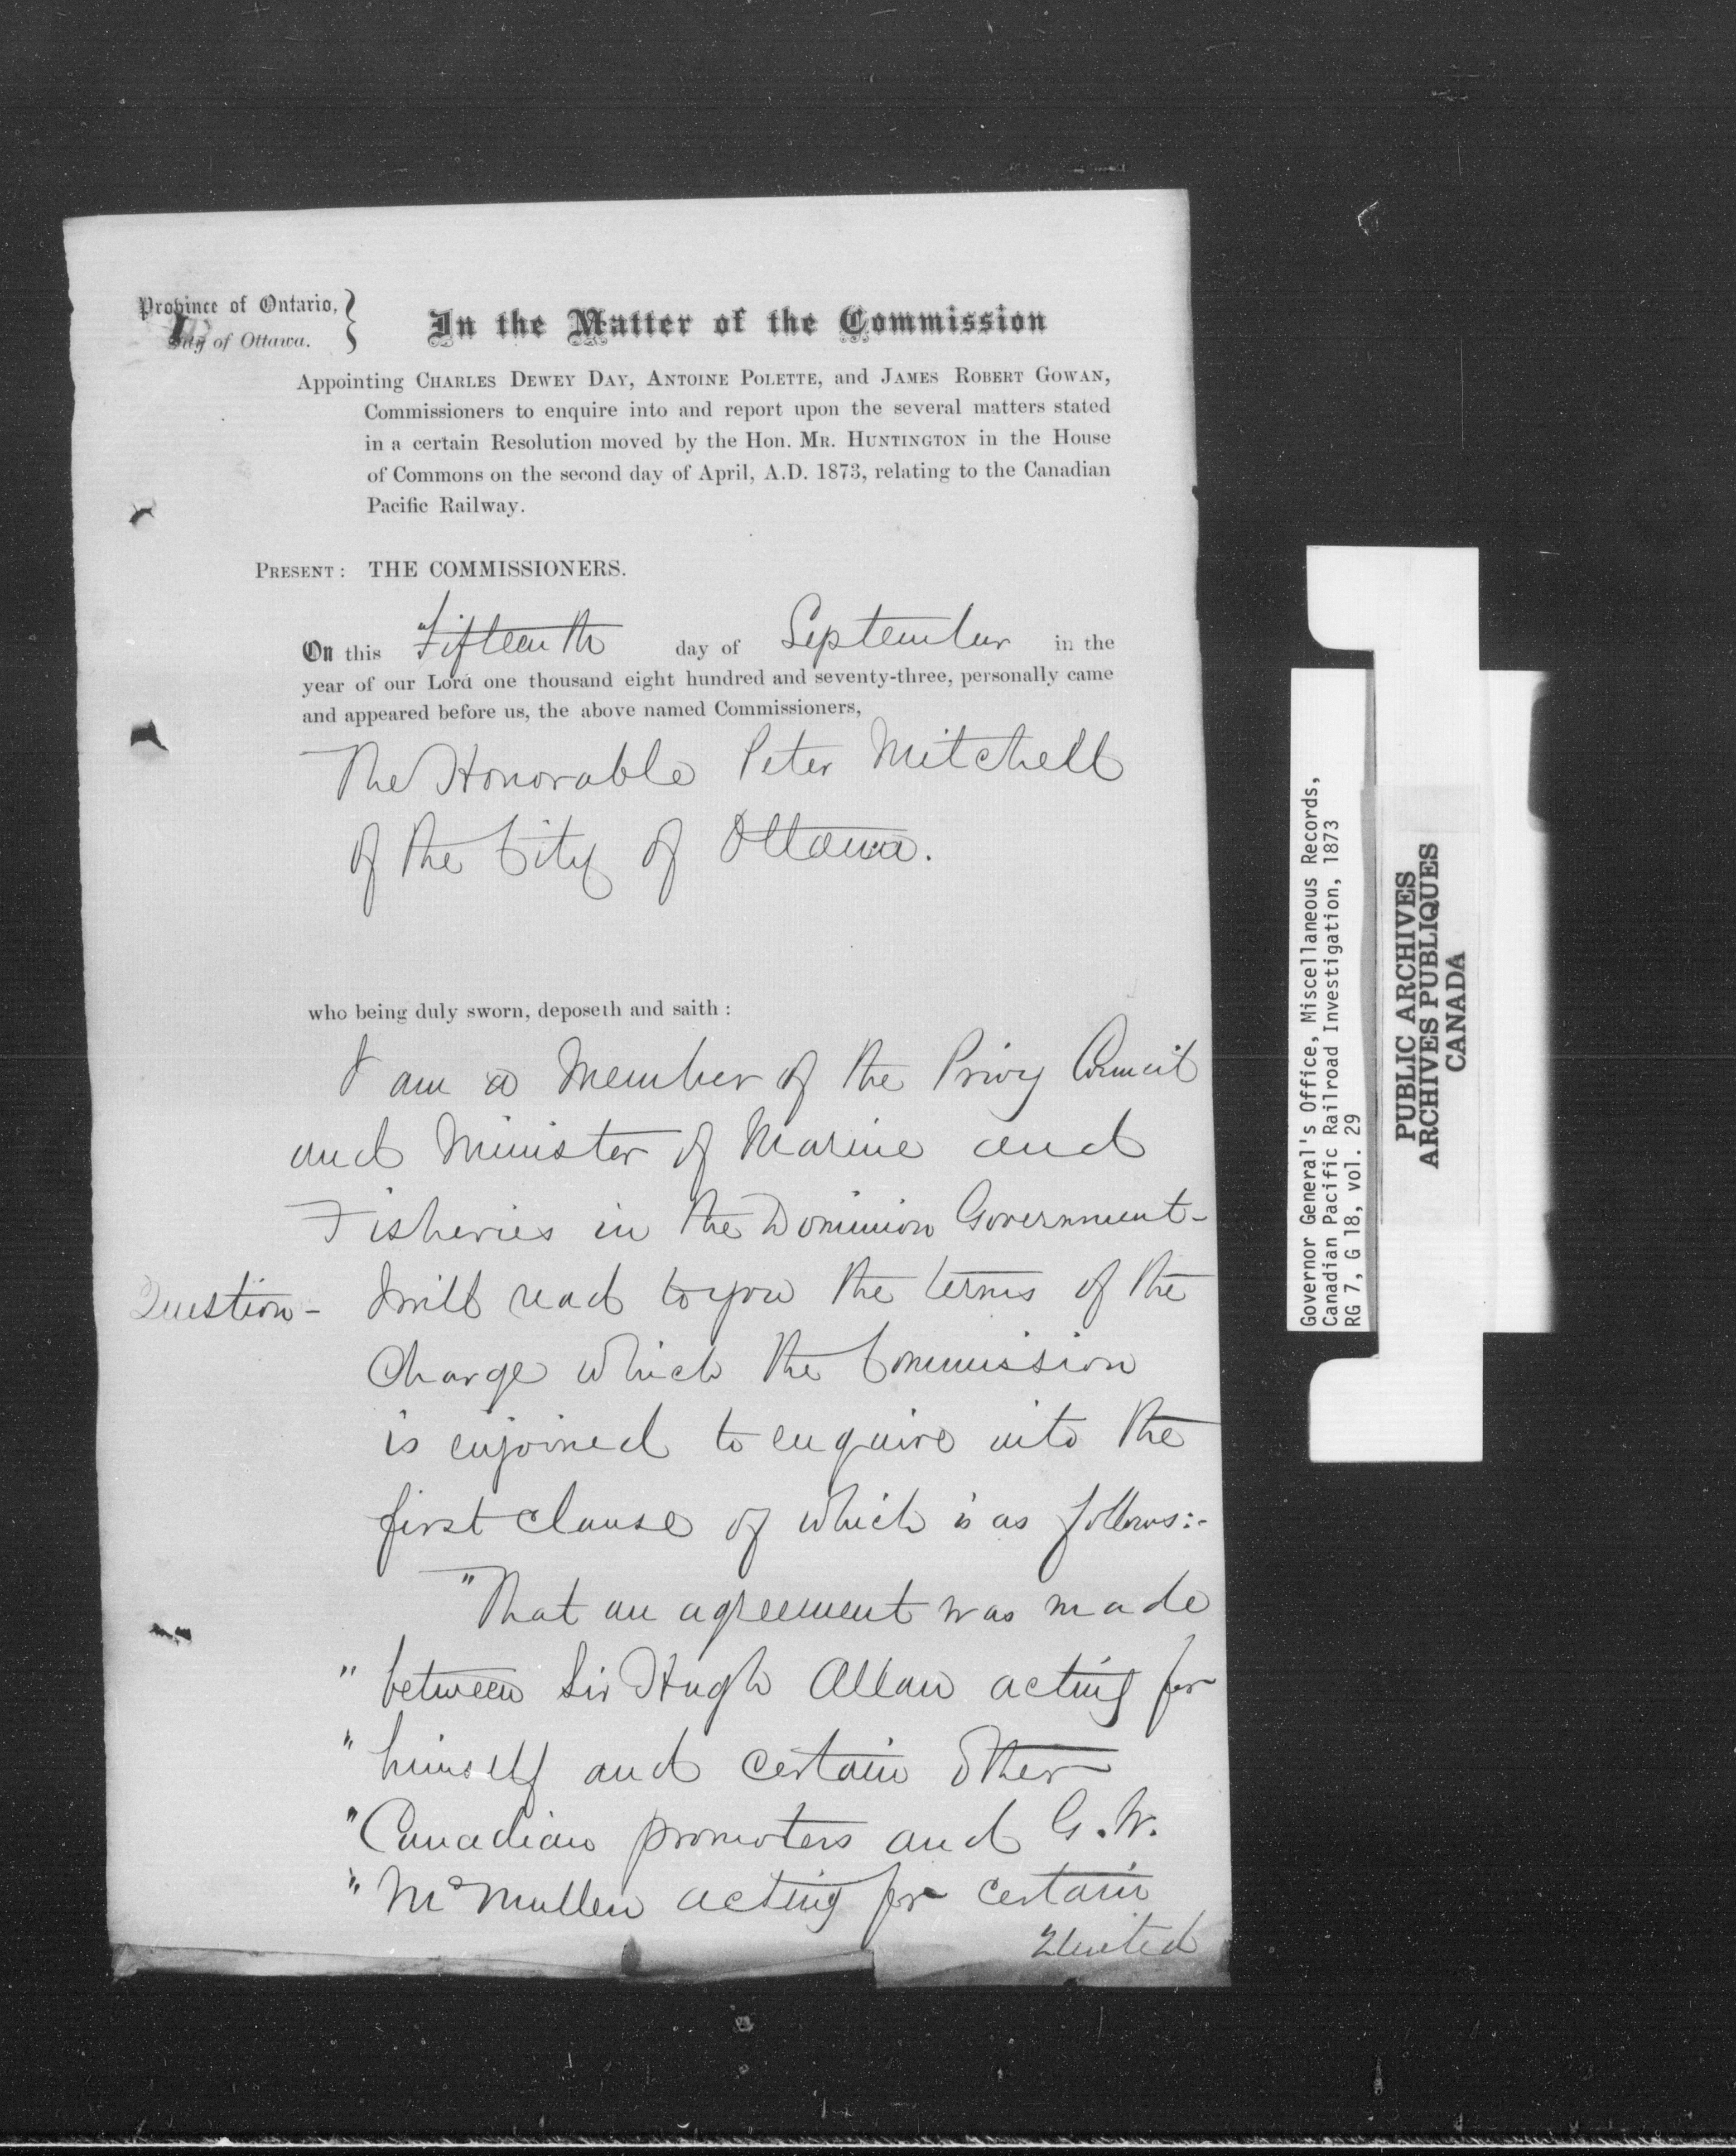 Province of Ontario,
City of Ottawa.
In the Matter of the Commission
Appointing CHARLES DEWEY DAY, ANTOINE POLETTE, and JAMES ROBERT GOWAN,
Commissioners to enquire into and report upon the several matters stated
in a certain Resolution moved by the Hon. MR. HUNTINGTON in the House
of Commons on the second day of April, A.D. 1873, relating to the Canadian
Pacific Railway.
PRESENT: THE COMMISSIONERS.
On this Fifteenth day of September in the
year of our Lord one thousand eight hundred and seventy-three, personally came
and appeared before us, the above named Commissioners,
The Honorable Peter Mitchell
of the City of Ottawa.
who being duly sworn, deposeth and saith:
I am a Member of the Privy Council
and Minister of Marine and
Fisheries in the Dominion Government-
Question- I will read to you the terms of the
Charge which the Commission
is enjoined to enquire into the
first clause of which is as follows:-
"That an agreement was made
" between Sir Hugh Allan acting for
" himself and certain other
" Canadian promoters and G. W.
" McMullen acting for certain
United
Governor General's Office, Miscellaneous Records,
Canadian Pacific Railroad Investigation, 1873
RG 7, G 18, vol. 29
PUBLIC ARCHIVES
ARCHIVES PUBLIQUES
CANADA